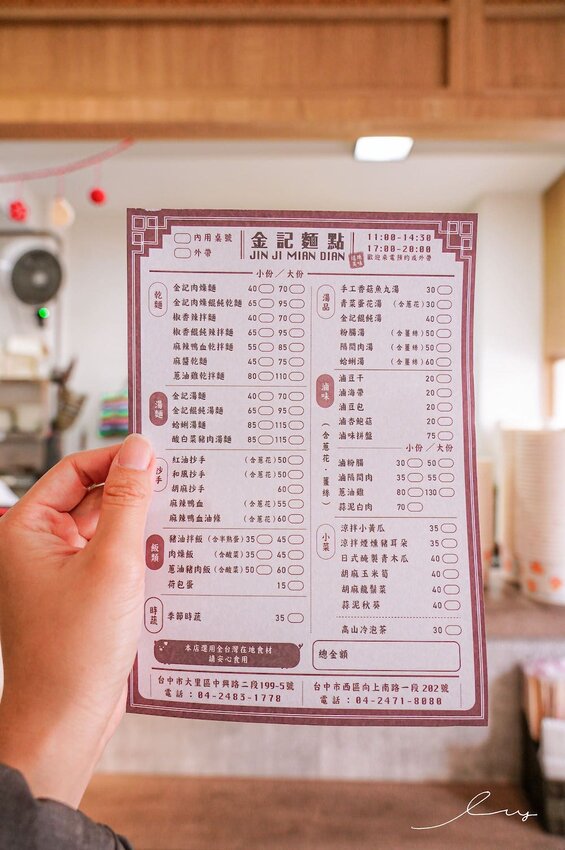 內用桌號
外帶
金記麵點
JIN JI MIAN DIAN
11:00-14:30
17:00-20:00
歡迎來電預約或外帶
小份／大份
乾麵
金記肉燥麵 40 70
金記肉燥餛飩乾麵 65 95
椒香辣拌麵 40 70
椒香餛飩辣拌麵 65 95
麻辣鴨血乾拌麵 55 85
麻醬乾麵 45 75
蔥油雞乾拌麵 80 110
湯麵
金記湯麵 40 70
金記餛飩湯麵 65 95
蛤蜊湯麵 85 115
酸白菜豬肉湯麵 85 115
抄手
紅油抄手 (含蔥花) 50
和風抄手 (含蔥花) 50
胡麻抄手 60
麻辣鴨血 (含蔥花) 55
麻辣鴨血油條 (含蔥花) 60
飯類
豬油拌飯 (含半熟蛋) 35 45
肉燥飯 (含酸菜) 35 45
蔥油豬肉飯 (含酸菜) 50 60
荷包蛋 15
時蔬
季節時蔬 35
本店選用全台灣在地食材
請安心食用
湯品
手工香菇魚丸湯 30
青菜蛋花湯 (含蔥花) 30
金記餛飩湯 40
粉腸湯 (含薑絲) 50
隔間肉湯 (含薑絲) 50
蛤蜊湯 (含薑絲) 60
滷味
(含蔥花、薑絲)
滷豆干 20
滷海帶 20
滷豆包 20
滷杏鮑菇 20
滷味拼盤 75
小份／大份
滷粉腸 30 50
滷隔間肉 35 55
蔥油雞 80 130
蒜泥白肉 70
小菜
涼拌小黃瓜 35
涼拌煙燻豬耳朵 35
日式醃製青木瓜 40
胡麻玉米筍 40
胡麻龍鬚菜 40
蒜泥秋葵 40
高山冷泡茶 30
總金額
台中市大里區中興路二段199-5號
電話：04-2483-1778
台中市西區向上南路一段202號
電話：04-2471-8080